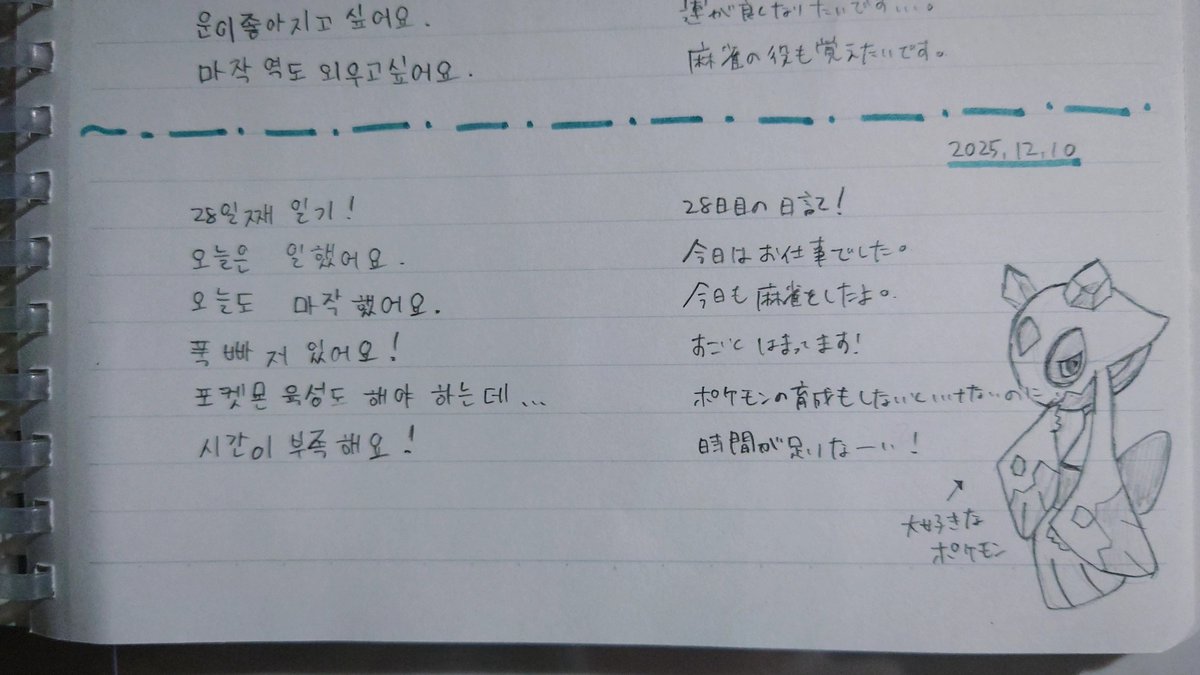 운이 좋아지고 싶어요.
運が良くなりたいです...。
마작 역도 외우고싶어요.
麻雀の役も覚えたいです。
2025.12.10
28일째 일기!
28日目の日記!
오늘은 일했어요.
今日はお仕事でした。
오늘도 마작했어요.
今日も麻雀をしたよ。
푹 빠져 있어요!
すごいとはまってます!
포켓몬 육성도 해야 하는데...
ポケモンの育成もしないといけないのに
시간이 부족해요!
時間が足りなーい!
大好きな
ポケモン